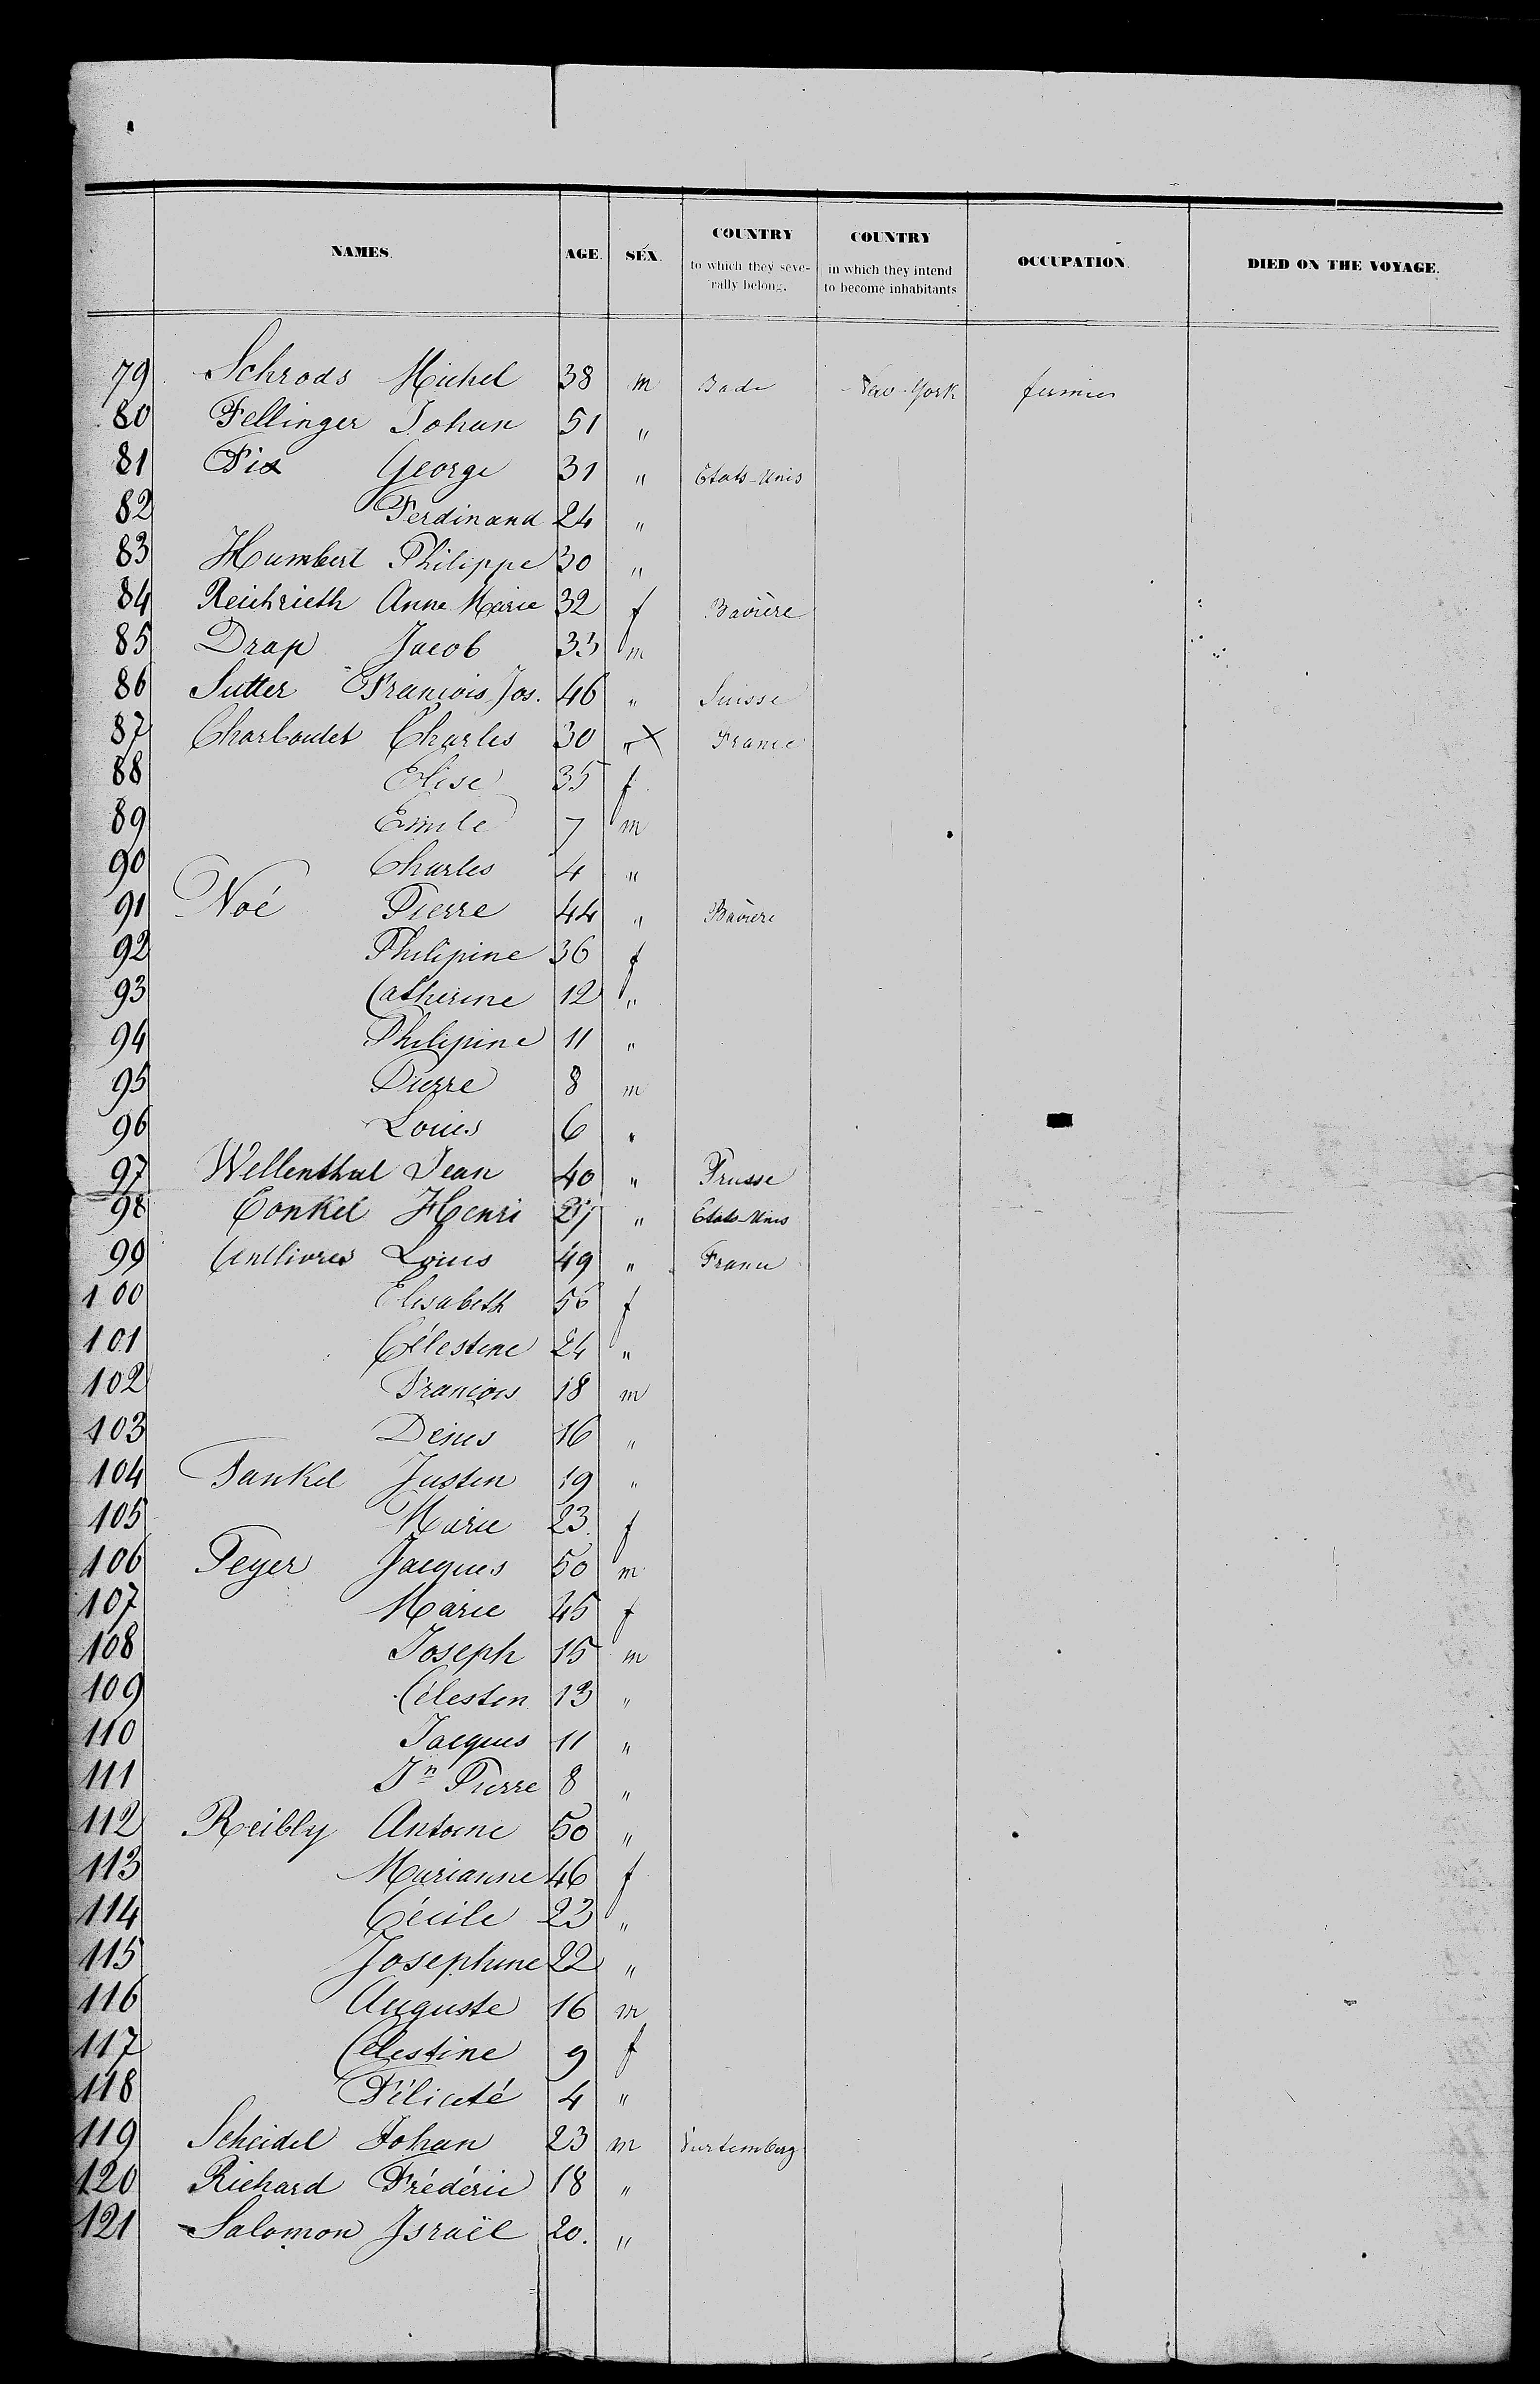 NAMES. AGE. SEX. COUNTRY to which they severally belong. COUNTRY in which they intend to become inhabitants OCCUPATION. DIED ON THE VOYAGE.
79 Schrods Michel 38 m Bade New-York fermier
80 Fellinger Johan 51 "
81 Fix George 31 " Etats-Unis
82 Ferdinand 24 "
83 Humbert Philippe 30 "
84 Reichrieth Anne Marie 32 f Bavière
85 Drap Jacob 33 m
86 Sutter François Jos. 46 " Suisse
87 Charboudet Charles 30 " X France
88 Elise 35 f
89 Emile 7 m
90 Charles 4 "
91 Noé Pierre 44 " Bavière
92 Philipine 36 f
93 Catherine 12 "
94 Philipine 11 "
95 Pierre 8 m
96 Louis 6 "
97 Wellenthal Jean 40 " Prusse
98 Conkel Henri " Etats-Unis
99 Louis 49 " France
100 Elisabeth 56 f
101 Célestine 24 "
102 François 18 m
103 Denis 16 "
104 Fankel Justin 19 "
105 Marie 23 f
106 Peyer Jacques 50 m
107 Marie 45 f
108 Joseph 15 m
109 Célestin 13 "
110 Jacques 11 "
111 Jn Pierre 8 "
112 Reibly Antoine 50 "
113 Marianne 46 f
114 Cécile 23 "
115 Josephine 22 "
116 Auguste 16 m
117 Célestine 9 f
118 Félicité 4 "
119 Scheidel Johan 23 m Vurtemberg
120 Richard Frédéric 18 "
121 Salomon Israël 20. "